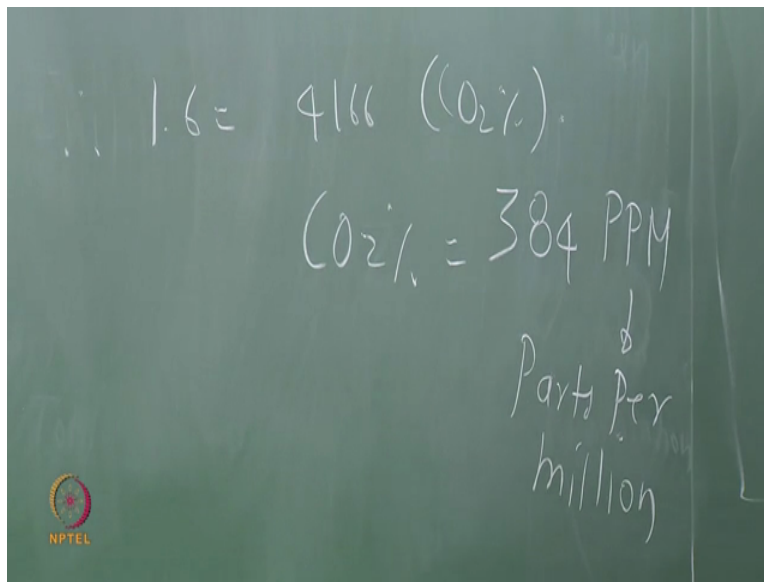 ∴ 1.6 = 4166 (CO2%).
CO2% = 384 PPM
↓
Parts Per
million
NPTEL